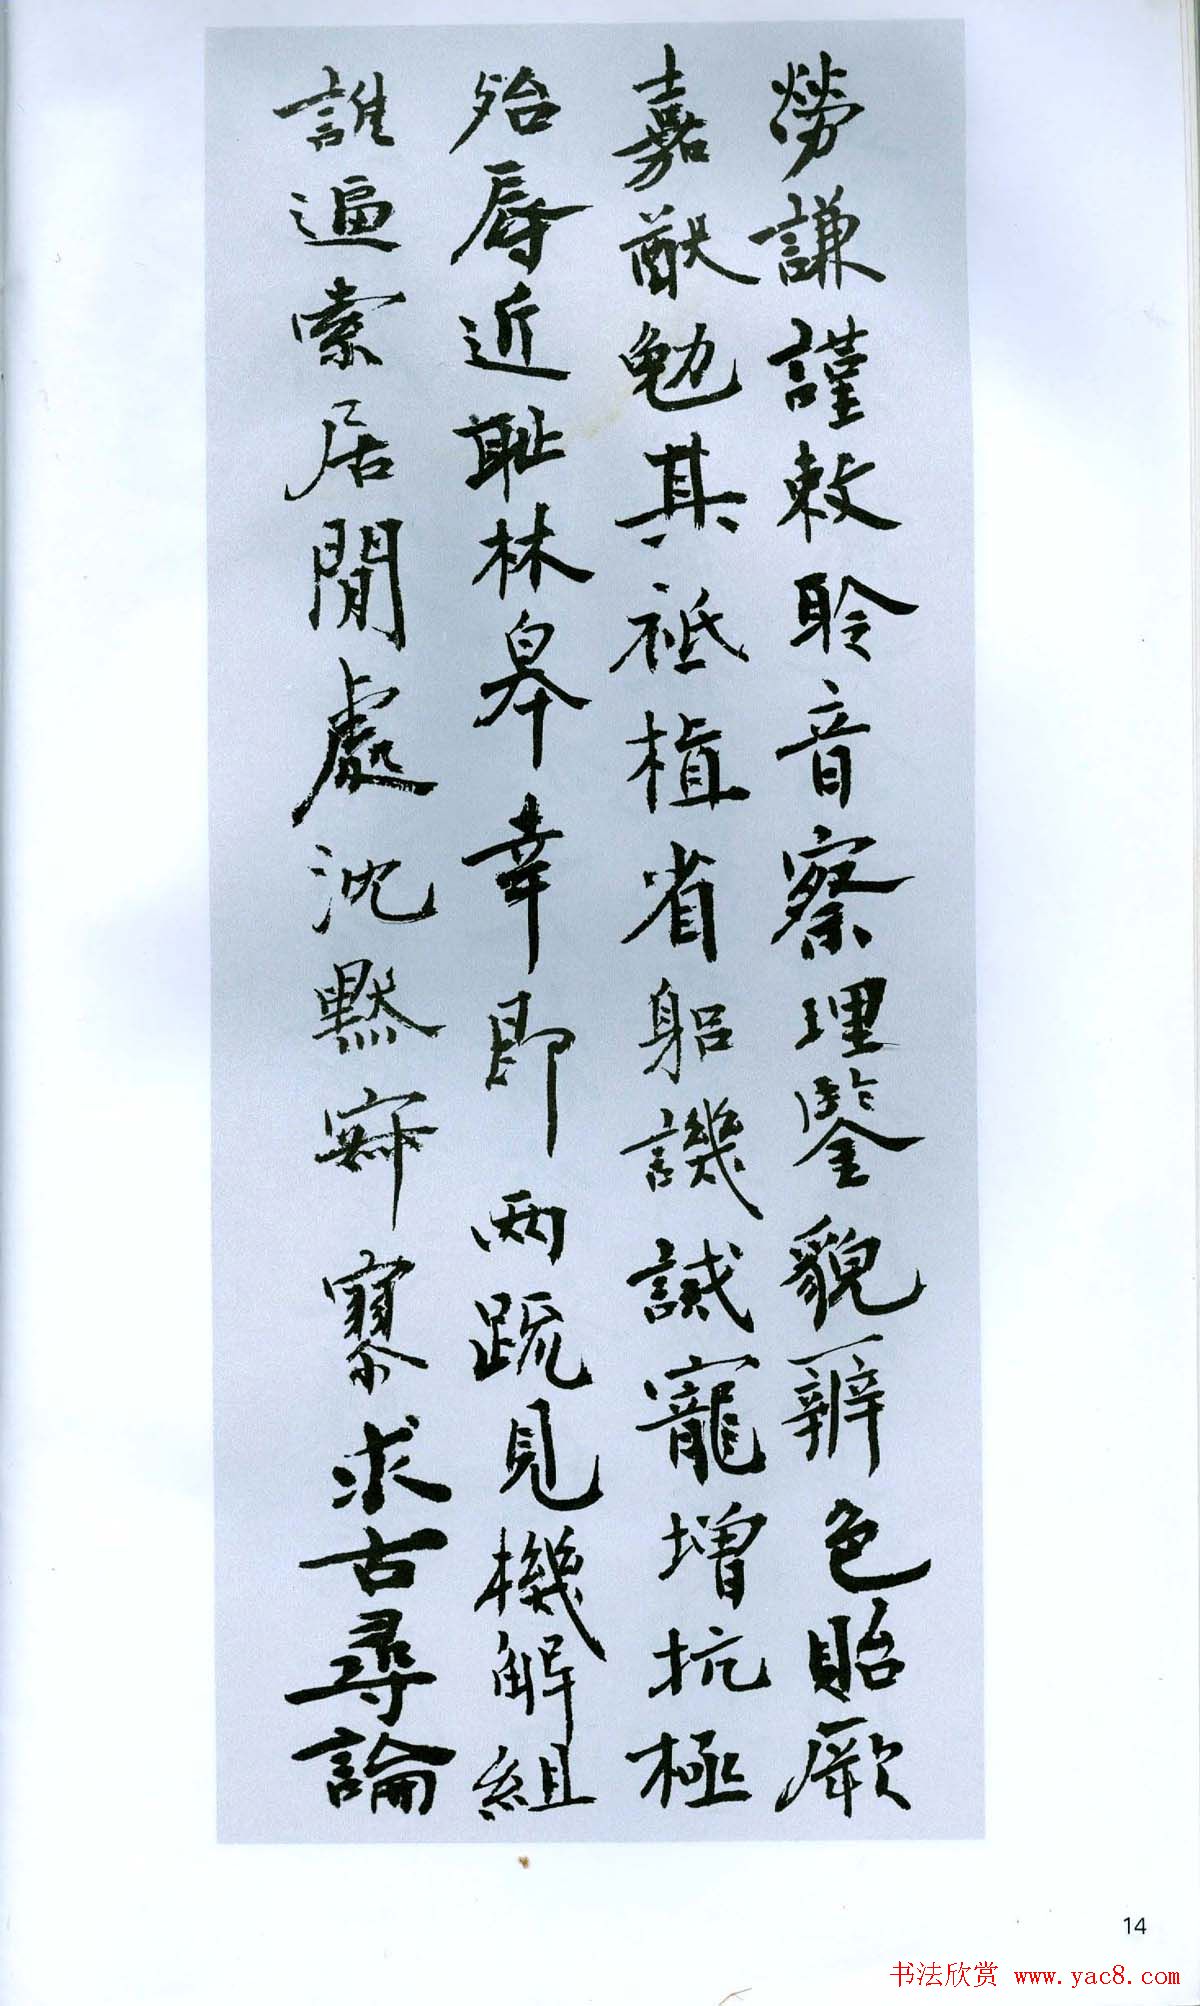 勞謙謹敕聆音察理鑒貌辨色貽厥
嘉猷勉其祗植省躳譏誡寵增抗極
殆辱近耻林皋幸即兩疏見機解組
誰逼索居閒處沈默寂寥求古尋論
14
书法欣赏 www.yac8.com